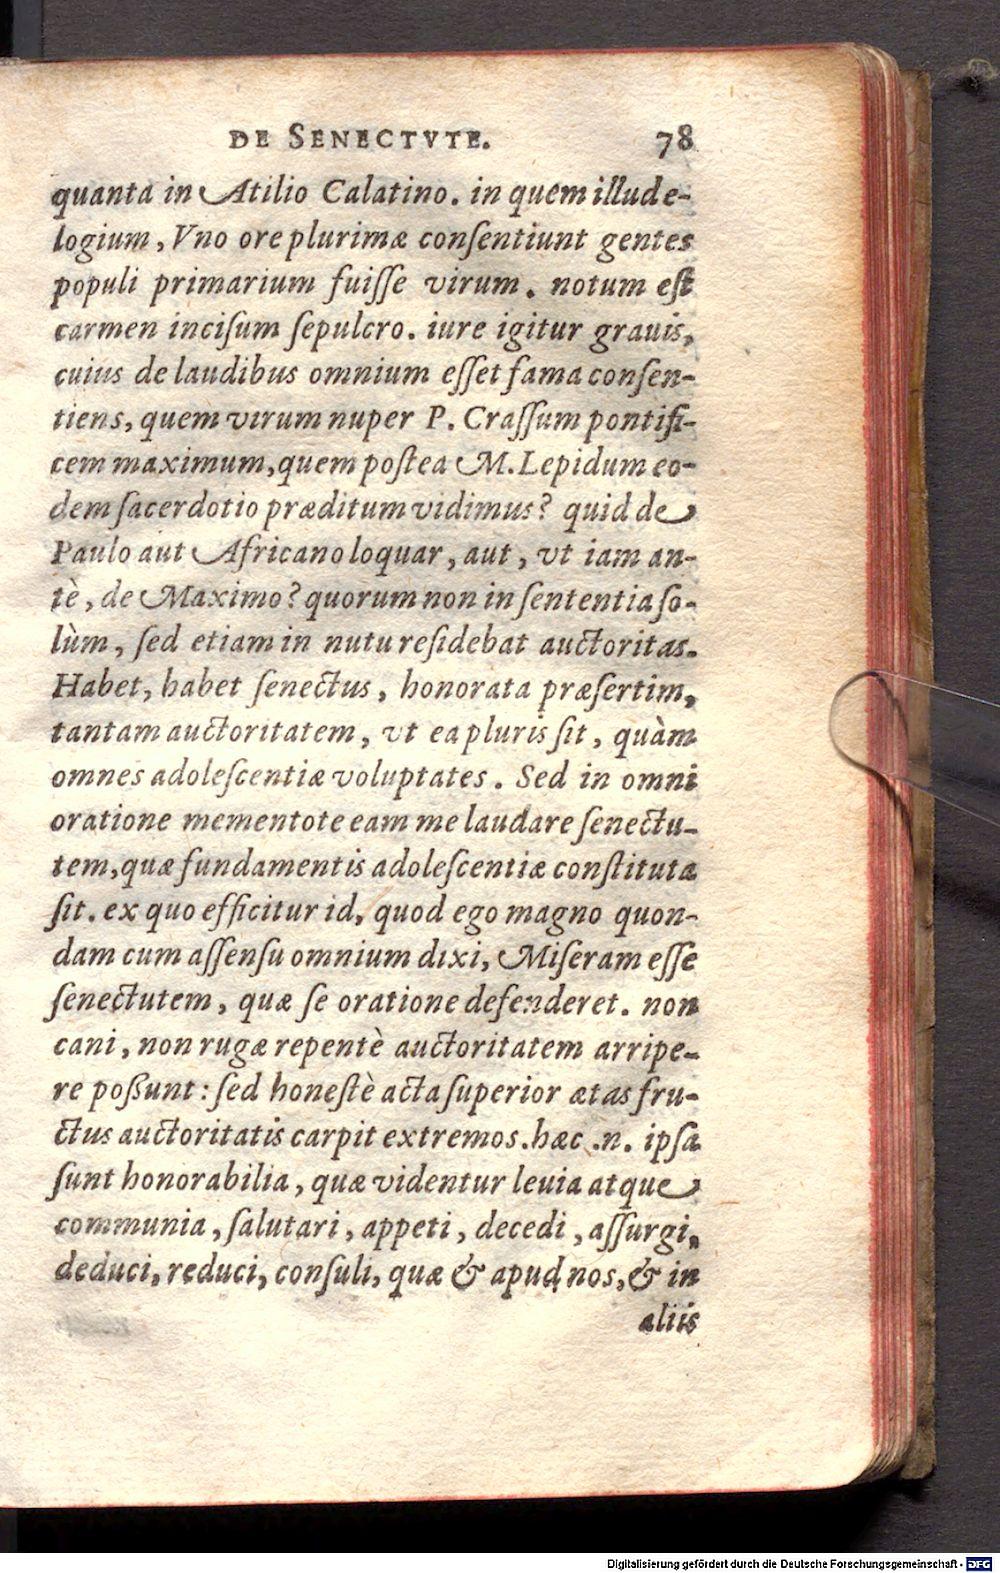 DE SENECTVTE. 78
quanta in Atilio Calatino. in quem illud e-
logium, Vno ore plurimæ conſentiunt gentes
populi primarium fuiſſe virum. notum eſt
carmen inciſum ſepulcro. iure igitur grauis,
cuius de laudibus omnium eſſet fama conſen-
tiens, quem virum nuper P. Craſſum pontifi-
cem maximum, quem poſtea M. Lepidum eo-
dem ſacerdotio præditum vidimus? quid de
Paulo aut Africano loquar, aut, vt iam an-
tè, de Maximo? quorum non in ſententia ſo-
lùm, ſed etiam in nutu reſidebat auctoritas.
Habet, habet ſenectus, honorata præſertim,
tantam auctoritatem, vt ea pluris ſit, quàm
omnes adoleſcentiæ voluptates. Sed in omni
oratione mementote eam me laudare ſenectu-
tem, quæ fundamentis adoleſcentiæ conſtituta
ſit. ex quo efficitur id, quod ego magno quon-
dam cum aſſenſu omnium dixi, Miſeram eſſe
ſenectutem, quæ ſe oratione defenderet. non
cani, non rugæ repentè auctoritatem arripe-
re poßunt: ſed honeſtè acta ſuperior ætas fru-
ctus auctoritatis carpit extremos. hæc .n. ipſa
ſunt honorabilia, quæ videntur leuia atque
communia, ſalutari, appeti, decedi, aſſurgi,
deduci, reduci, conſuli, quæ & apud nos, & in
aliis
Digitalisierung gefördert durch die Deutsche Forschungsgemeinschaft - DFG